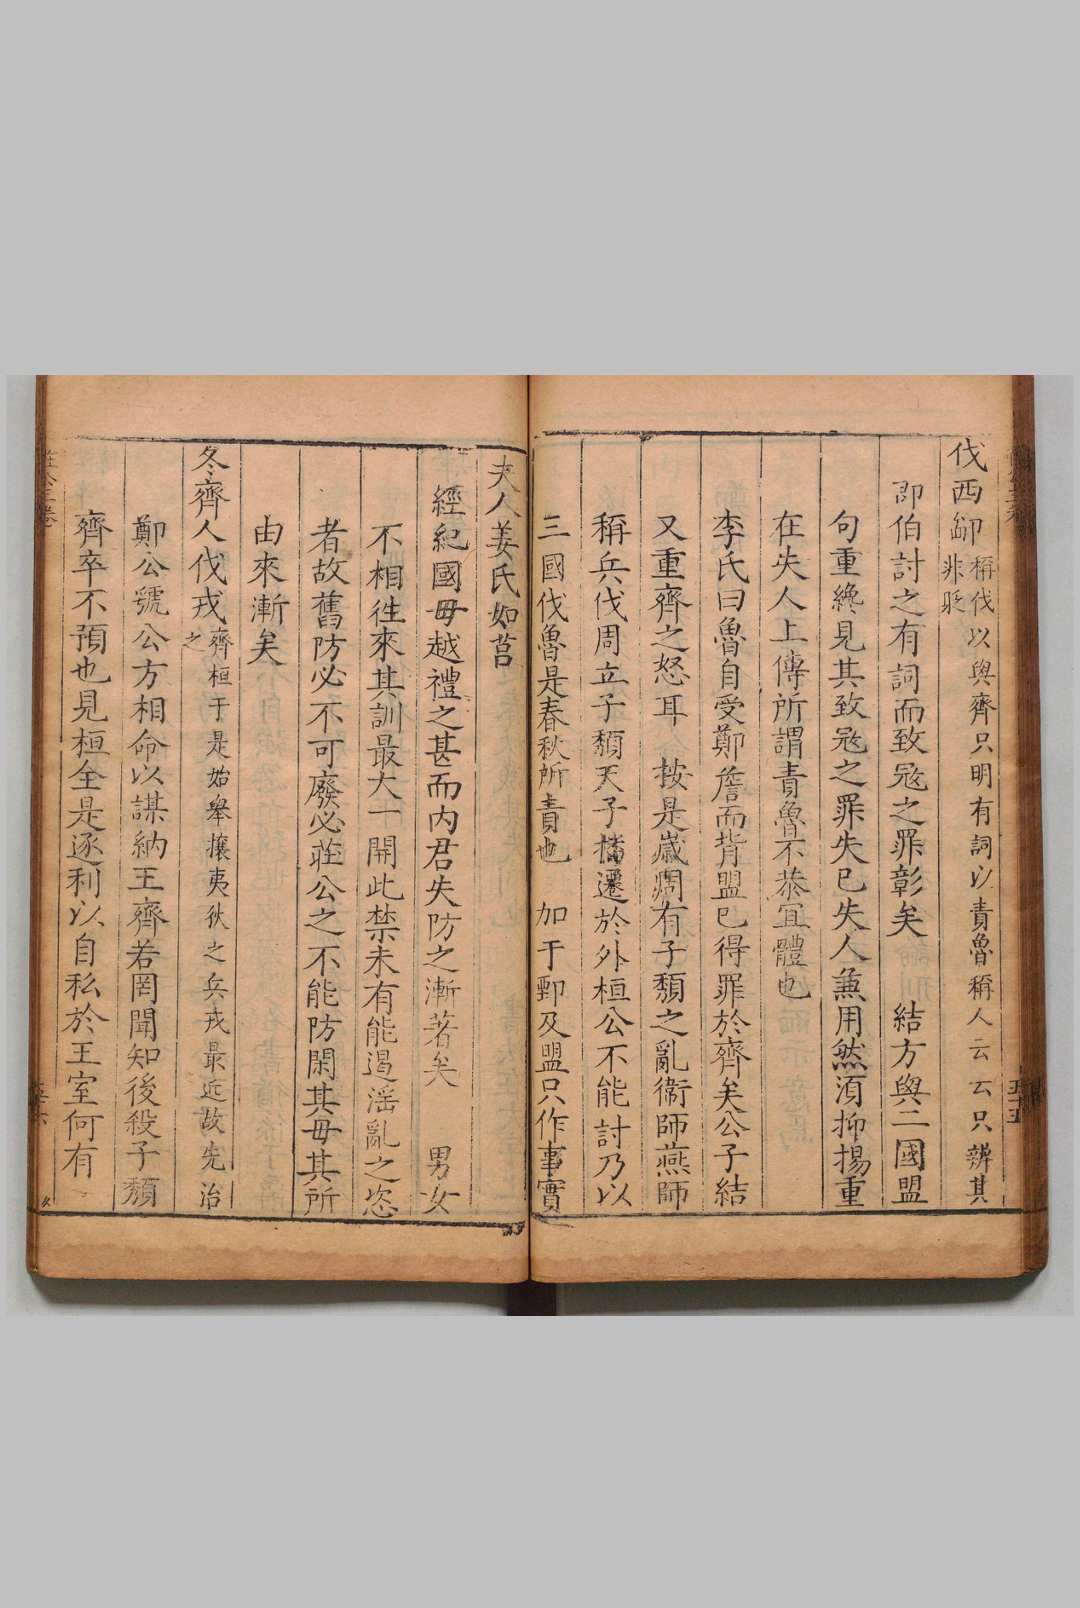 伐西鄙稱伐以與齊只明有詞以責魯稱人云云只辨其非貶
即伯討之有詞而致寇之罪彰矣　結方與二國盟
句重纔見其致寇之罪失已失人兼用然須抑揚重
在失人上傳所謂責魯不恭冝體也
李氏曰魯自受鄭詹而背盟已得罪於齊矣公子結
又重齊之怒耳　按是歲周有子頹之亂衛師燕師
稱兵伐周立子頹天子播遷於外桓公不能討乃以
三國伐魯是春秋所責也　加于鄄及盟只作事實
夫人姜氏如莒
經紀國母越禮之甚而内君失防之漸著矣　男女
不相徃來其訓最大一開此禁未有能遏淫亂之恣
者故舊防必不可廢必莊公之不能防閑其母其所
由來漸矣
冬齊人伐戎齊桓于是始舉攘夷狄之兵戎最近故先治之
鄭公號公方相命以謀納王齊若罔聞知後殺子頹
齊卒不預也見桓全是逐利以自私於王室何有
五十五